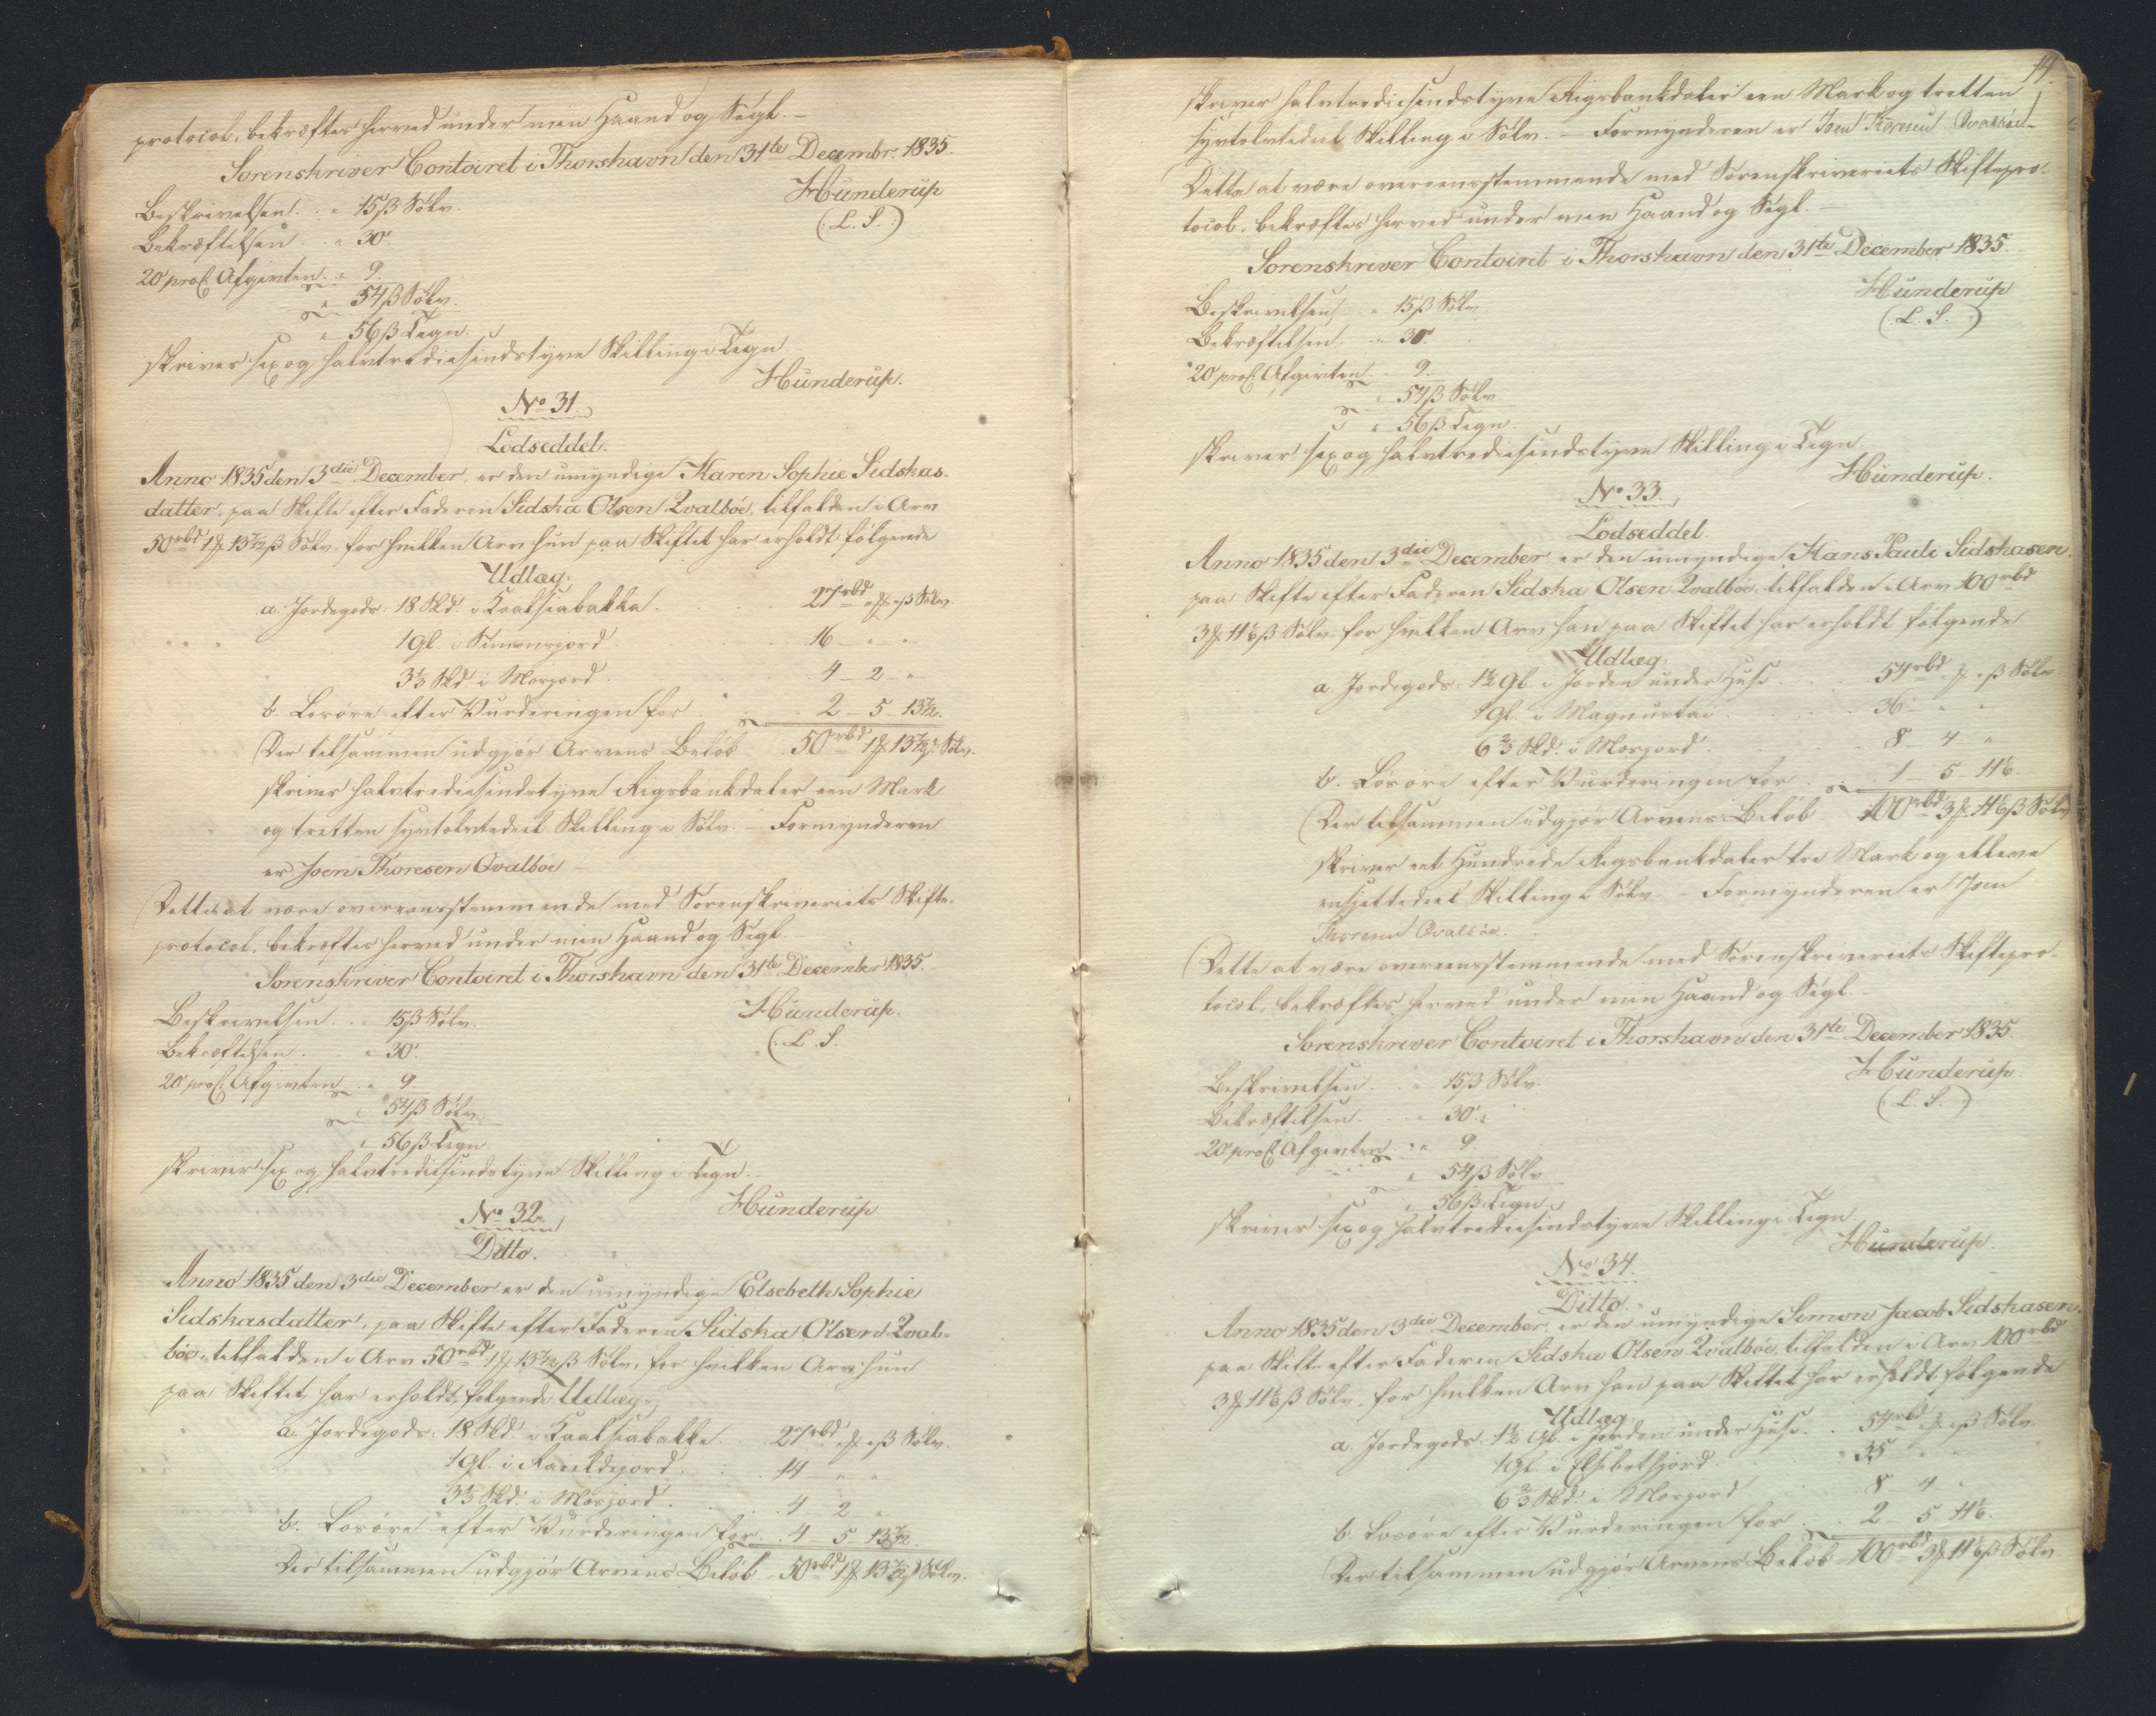 protocol, bekræftes herved under min Haand og Segl. –
Sorenskriver Contoiret i Thorshavn den 31te Decembr. 1835.
Hunderup
(L. S.)
Beskrivelsen . . " 15 ß Sølv.
Bekræftelsen . . " 30.
20 proC. Afgivten . " 9.
" 54 ß Sølv.
" 56 ß Tegn.
skriver sex og halvtrediesindstyve Skilling i Tegn.
Hunderup.
No 31.
Lodseddel.
Anno 1835 den 3die December, er den umyndige Karen Sophie Sidskas-
datter, paa Skifte efter Faderen Sidska Olsen Qvalböe, tilfalden i Arv
50 rbd 1 ₻ 13 7/12 ß Sølv, for hvilken Arv hun paa Skiftet har erholdt følgende
Udlæg.
a. Jordegods: 18 Skd. i Kaalsiabakka . . . 27 rbd " ₻ " ß Sølv
1 Gl. i Simonsjord . . . 16 – " – "
3 1/3 Skd. i Morjord . . . 4 – 2 – "
b. Løsøre efter Vurderingen for . . 2 – 5 – 13 7/12.
Der tilsammen udgjør Arvens Beløb . . 50 rbd 1 ₻ 13 7/12 ß Sølv.
skriver halvtrediesindstyve Rigsbankdaler een Mark
og tretten syvtolvtedeel Skilling i Sølv. – Formynderen
er Joen Thoresen Qvalboe –
Dette at være overeensstemmende med Sorenskriveriets Skifte-
protocol, bekræftes herved under min Haand og Segl. –
Sorenskriver Contoiret i Thorshavn den 31te December 1835.
Hunderup.
(L. S.
Beskrivelsen . . " 15 ß Sølv.
Bekræftelsen . . " 30.
20 proC. Afgivten . " 9
" 54 ß Sølv
" 56 ß Tegn
skriver sex og halvtrediesindstyve Skilling i Tegn.
Hunderup
No 32.
Ditto.
Anno 1835 den 3die December er den umyndige Elsebeth Sophie
Sidskasdatter, paa Skifte efter Faderen Sidska Olsen Qval-
böe, tilfalden i Arv 50 rbd 1 ₻ 13 7/12 ß Sølv, for hvilken Arv hun
paa Skiftet har erholdt følgende Udlæg.
a. Jordegods: 18 Skd. i Kaalsiabakke . . 27 rbd " ₻ " ß Sølv.
1 Gl. i . . 14 " "
3 1/3 Skd. i Morjord . . . 4 2 "
b. Løsøre efter Vurderingen for . . 4 5 13 7/12.
Der tilsammen udgjør Arvens Beløb – 50 rbd 1 ₻ 13 7/12 ß Sølv.
14.
skriver halvtrediesindstyve Rigsbankdaler een Mark og tretten
syvtolvtedeel Skilling i Sølv. – Formynderen er Joen Thoresen Qvalböe –
Dette at være overeensstemmende med Sorenskriveriets Skiftepro-
tocol, bekræftes herved under min Haand og Segl. –
Sorenskriver Contoiret i Thorshavn den 31te December 1835
Hunderup
(L. S.)
Beskrivelsen . " 15 ß Sølv
Bekræftelsen . " 30.
20 proC. Afgivten . 9.
" 54 ß Sølv
" 56 ß Tegn
skriver sex og halvtrediesindstyve Skilling i Tegn.
Hunderup.
No 33.
Lodseddel.
Anno 1835 den 3die December er den umyndige Hans Pauli Sidskasen,
paa Skifte efter Faderen Sidska Olsen Qvalboe tilfalden i Arv 100 rbd
3 ₻ 11 1/6 ß Sølv, for hvilken Arv han paa Skiftet har erholdt følgende
Udlæg.
a. Jordegods: 1 1/2 Gl. i Jorden under Huse . . 54 rbd " ₻ " ß Sølv
1 Gl. i Magnustai . . . 36 – " "
6 2/3 Skd. i Morjord . . . 8 – 4 "
b. Løsøre efter Vurderingen for . . 1 – 5 – 11 1/6.
Der tilsammen udgjør Arvens Beløb . 100 rbd 3 ₻ 11 1/6 ß Sølv
skriver eet Hundrede Rigsbankdaler tre Mark og elleve
ensjettedeel Skilling i Sølv. – Formynderen er Joen
Thoresen Qvalböe.
Dette at være overeensstemmende med Sorenskriveriets Skiftepro-
tocol, bekræftes herved under min Haand og Segl. –
Sorenskriver Contoiret i Thorshavn den 31te December 1835.
Hunderup.
(L. S.)
Beskrivelsen . . " 15 ß Sølv.
Bekræftelsen . . " 30.
20 proC. Afgivten . " 9.
" 54 ß Sølv
" 56 ß Tegn
skriver sex og halvtrediesindstyve Skilling i Tegn
Hunderup
No 34.
Ditto.
Anno 1835 den 3die December, er den umyndige Simon Jacob Sidskasen,
paa Skifte efter Faderen Sidska Olsen Qvalböe, tilfalden i Arv 100 rbd
3 ₻ 11 1/6 ß Sølv, for hvilken Arv han paa Skiftet har erholdt følgende
Udlæg.
a. Jordegods: 1 1/2 Gl. i Jorden under Huse . . 54 rbd " ₻ " ß Sølv.
1 Gl. i Elsebetsjord . . 35 " "
6 2/3 Skd. i Morjord . . 8 – 4 "
b. Løsøre efter Vurderingen for . . 2 – 5 – 11 1/6.
Der tilsammen udgjør Arvens Beløb – 100 rbd 3 ₻ 11 1/6 ß Sølv